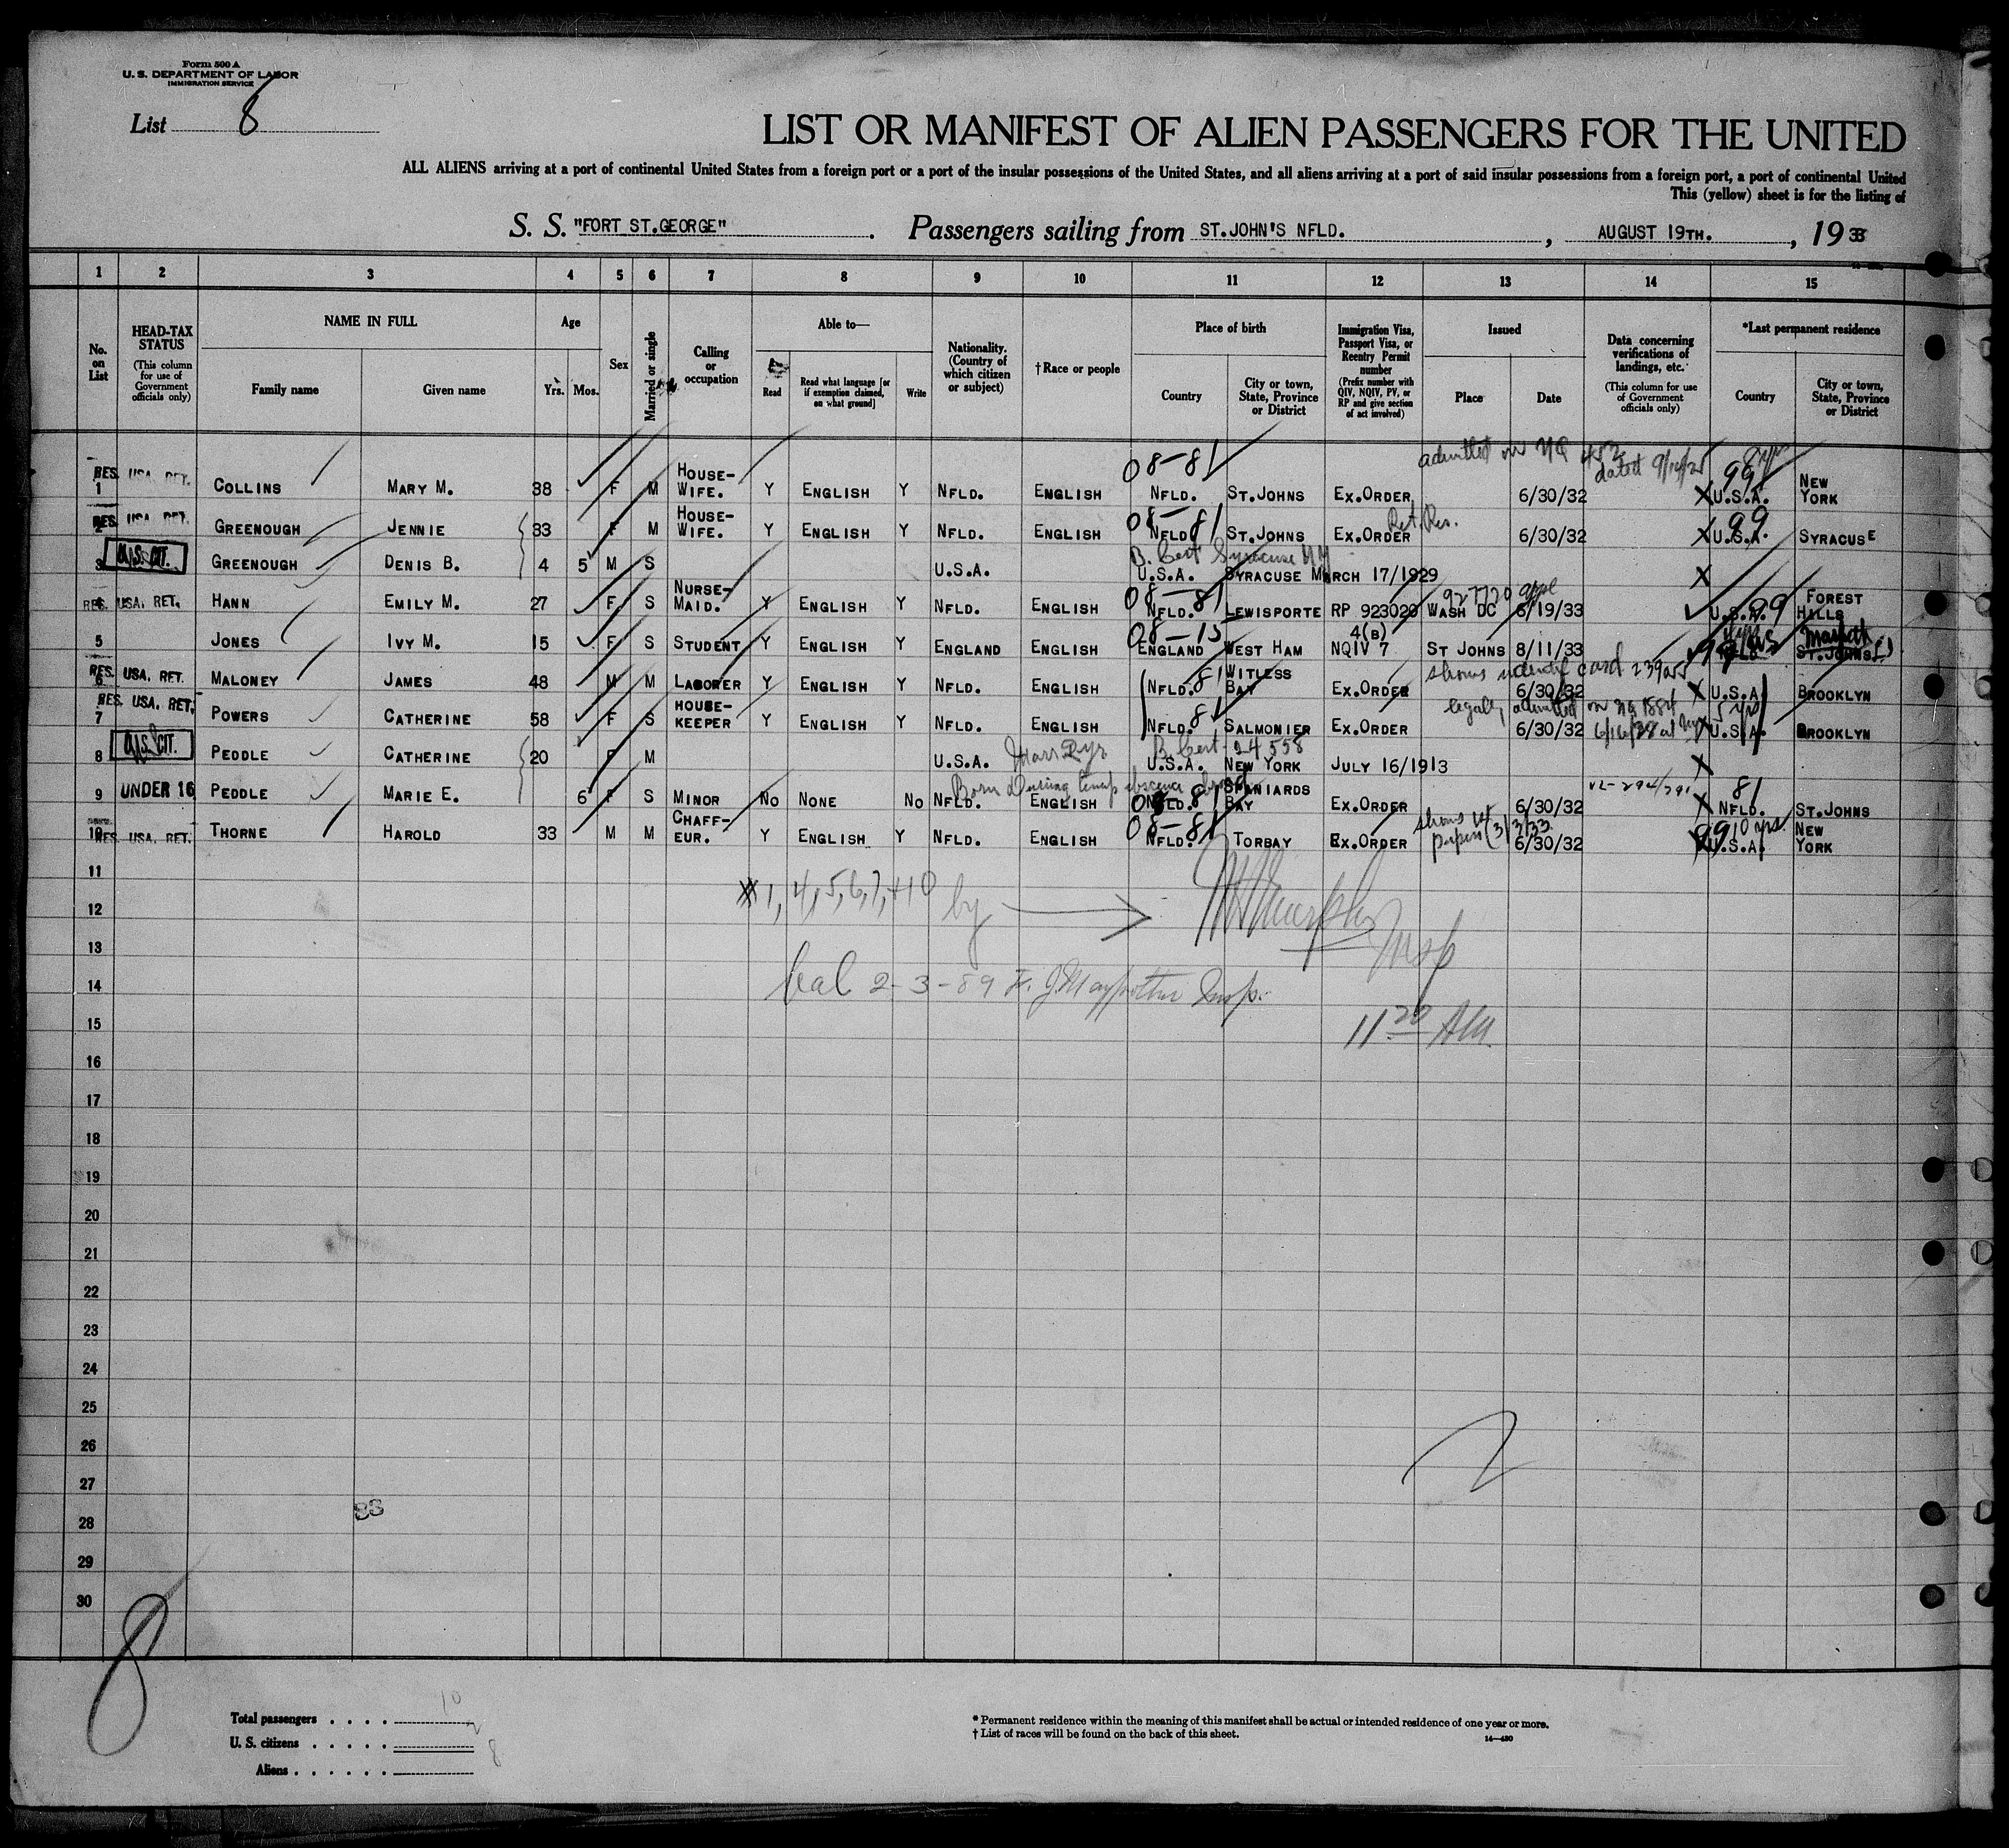 Form 500 A
U. S. DEPARTMENT OF LABOR
IMMIGRATION SERVICE
List 8
LIST OR MANIFEST OF ALIEN PASSENGERS FOR THE UNITED
ALL ALIENS arriving at a port of continental United States from a foreign port or a port of the insular possessions of the United States, and all aliens arriving at a port of said insular possessions from a foreign port, a port of continental United
This (yellow) sheet is for the listing of
S. S. "FORT ST.GEORGE". Passengers sailing from ST.JOHN'S NFLD., AUGUST 19TH., 1933
1 2 3 4 5 6 7 8 9 10 11 12 13 14 15
No. on List
HEAD-TAX STATUS
(This column for use of Government officials only)
NAME IN FULL
Family name Given name
Age
Yrs. Mos.
Sex
Married or single
Calling or occupation
Able to—
Read
Read what language [or if exemption claimed, on what ground]
Write
Nationality. (Country of which citizen or subject)
†Race or people
Place of birth
Country
City or town, State, Province or District
Immigration Visa, Passport Visa, or Reentry Permit number
(Prefix number with QIV, NQIV, PV, or RP and give section of act involved)
Issued
Place Date
Data concerning verifications of landings, etc.
(This column for use of Government officials only)
*Last permanent residence
Country
City or town, State, Province or District
admitted on NQ 452 dated 9/14/25
RES. USA. RET. 1 COLLINS MARY M. 38 F M HOUSE-WIFE. Y ENGLISH Y NFLD. ENGLISH 08-81 NFLD. ST.JOHNS EX.ORDER 6/30/32 X 99 U.S.A. NEW YORK
RES. USA. RET. 2 GREENOUGH JENNIE 33 F M HOUSE-WIFE. Y ENGLISH Y NFLD. ENGLISH 08-81 NFLD. ST.JOHNS EX.ORDER Ret. Res. 6/30/32 X 99 U.S.A. SYRACUSE
U.S. CIT. 3 GREENOUGH DENIS B. 4 5 M S U.S.A. B. Cert Syracuse NY U.S.A. SYRACUSE MARCH 17/1929 X
RES. USA. RET. 4 HANN EMILY M. 27 F S NURSE-MAID. Y ENGLISH Y NFLD. ENGLISH 08-81 NFLD. LEWISPORTE RP 923020 927720 WASH DC 6/19/33 U.S.A. 99 FOREST HILLS
5 JONES IVY M. 15 F S STUDENT Y ENGLISH Y ENGLAND ENGLISH 08-15 ENGLAND WEST HAM 4(B) NQIV 7 ST JOHNS 8/11/33 NFLD ST.JOHNS
RES. USA. RET. 6 MALONEY JAMES 48 M M LABORER Y ENGLISH Y NFLD. ENGLISH NFLD. 81 WITLESS BAY EX.ORDER shows identif card 23905 6/30/32 X U.S.A. BROOKLYN
RES. USA. RET. 7 POWERS CATHERINE 58 F S HOUSE-KEEPER Y ENGLISH Y NFLD. ENGLISH NFLD. 81 SALMONIER EX.ORDER legally admitted on NQ 1884 6/16/28 at 6/30/32 X U.S.A. BROOKLYN
U.S. CIT. 8 PEDDLE CATHERINE 20 F M U.S.A. Marr 2 yrs B. Cert - 24558 U.S.A. NEW YORK JULY 16/1913 X
Born during temp absence abroad
UNDER 16 9 PEDDLE MARIE E. 6 F S MINOR NO NONE NO NFLD. ENGLISH NFLD. 81 SPANIARDS BAY EX.ORDER 6/30/32 X 81 NFLD. ST.JOHNS
RES. USA. RET. 10 THORNE HAROLD 33 M M CHAFF-EUR. Y ENGLISH Y NFLD. ENGLISH 08-81 NFLD. TORBAY EX.ORDER shows 1st papers 6/30/32 99 10 yrs. U.S.A. NEW YORK
11
#1, 4, 5, 6, 7, +10 by
12
Insp
13
14
bal 2-3-89 Insp.
15
11 20 AM.
16
17
18
19
20
21
22
23
24
25
26
27
88
28
29
30
8
Total passengers . . . . 10
U. S. citizens . . . . . 2
Aliens . . . . . . 8
* Permanent residence within the meaning of this manifest shall be actual or intended residence of one year or more.
† List of races will be found on the back of this sheet.
14—430